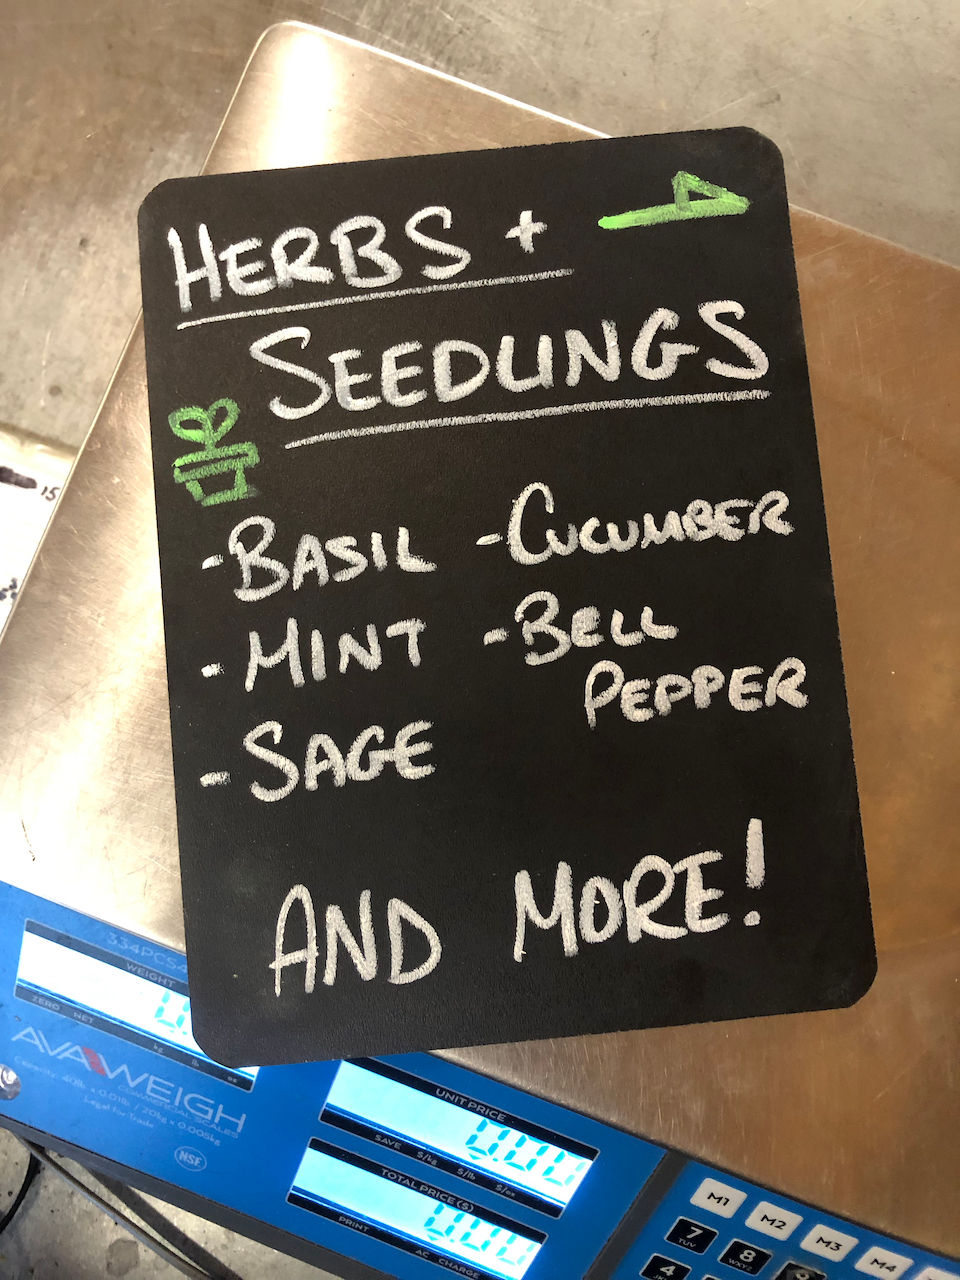 HERBS +
SEEDLINGS
- BASIL
- MINT
- SAGE
- CUCUMBER
- BELL
PEPPER
AND MORE!
15
334PCS4
WEIGHT
ZERO NET
kg lb oz
AVAWEIGH
COMMERCIAL SCALES
Capacity: 40lb x 0.01lb / 20kg x 0.005kg
Legal for Trade
NSF
UNIT PRICE
0.00
SAVE $/kg $/lb $/oz
TOTAL PRICE ($)
0.00
PRINT AC CHARGE
M1 M2 M3 M4
7 TUV
8 WXYZ
4